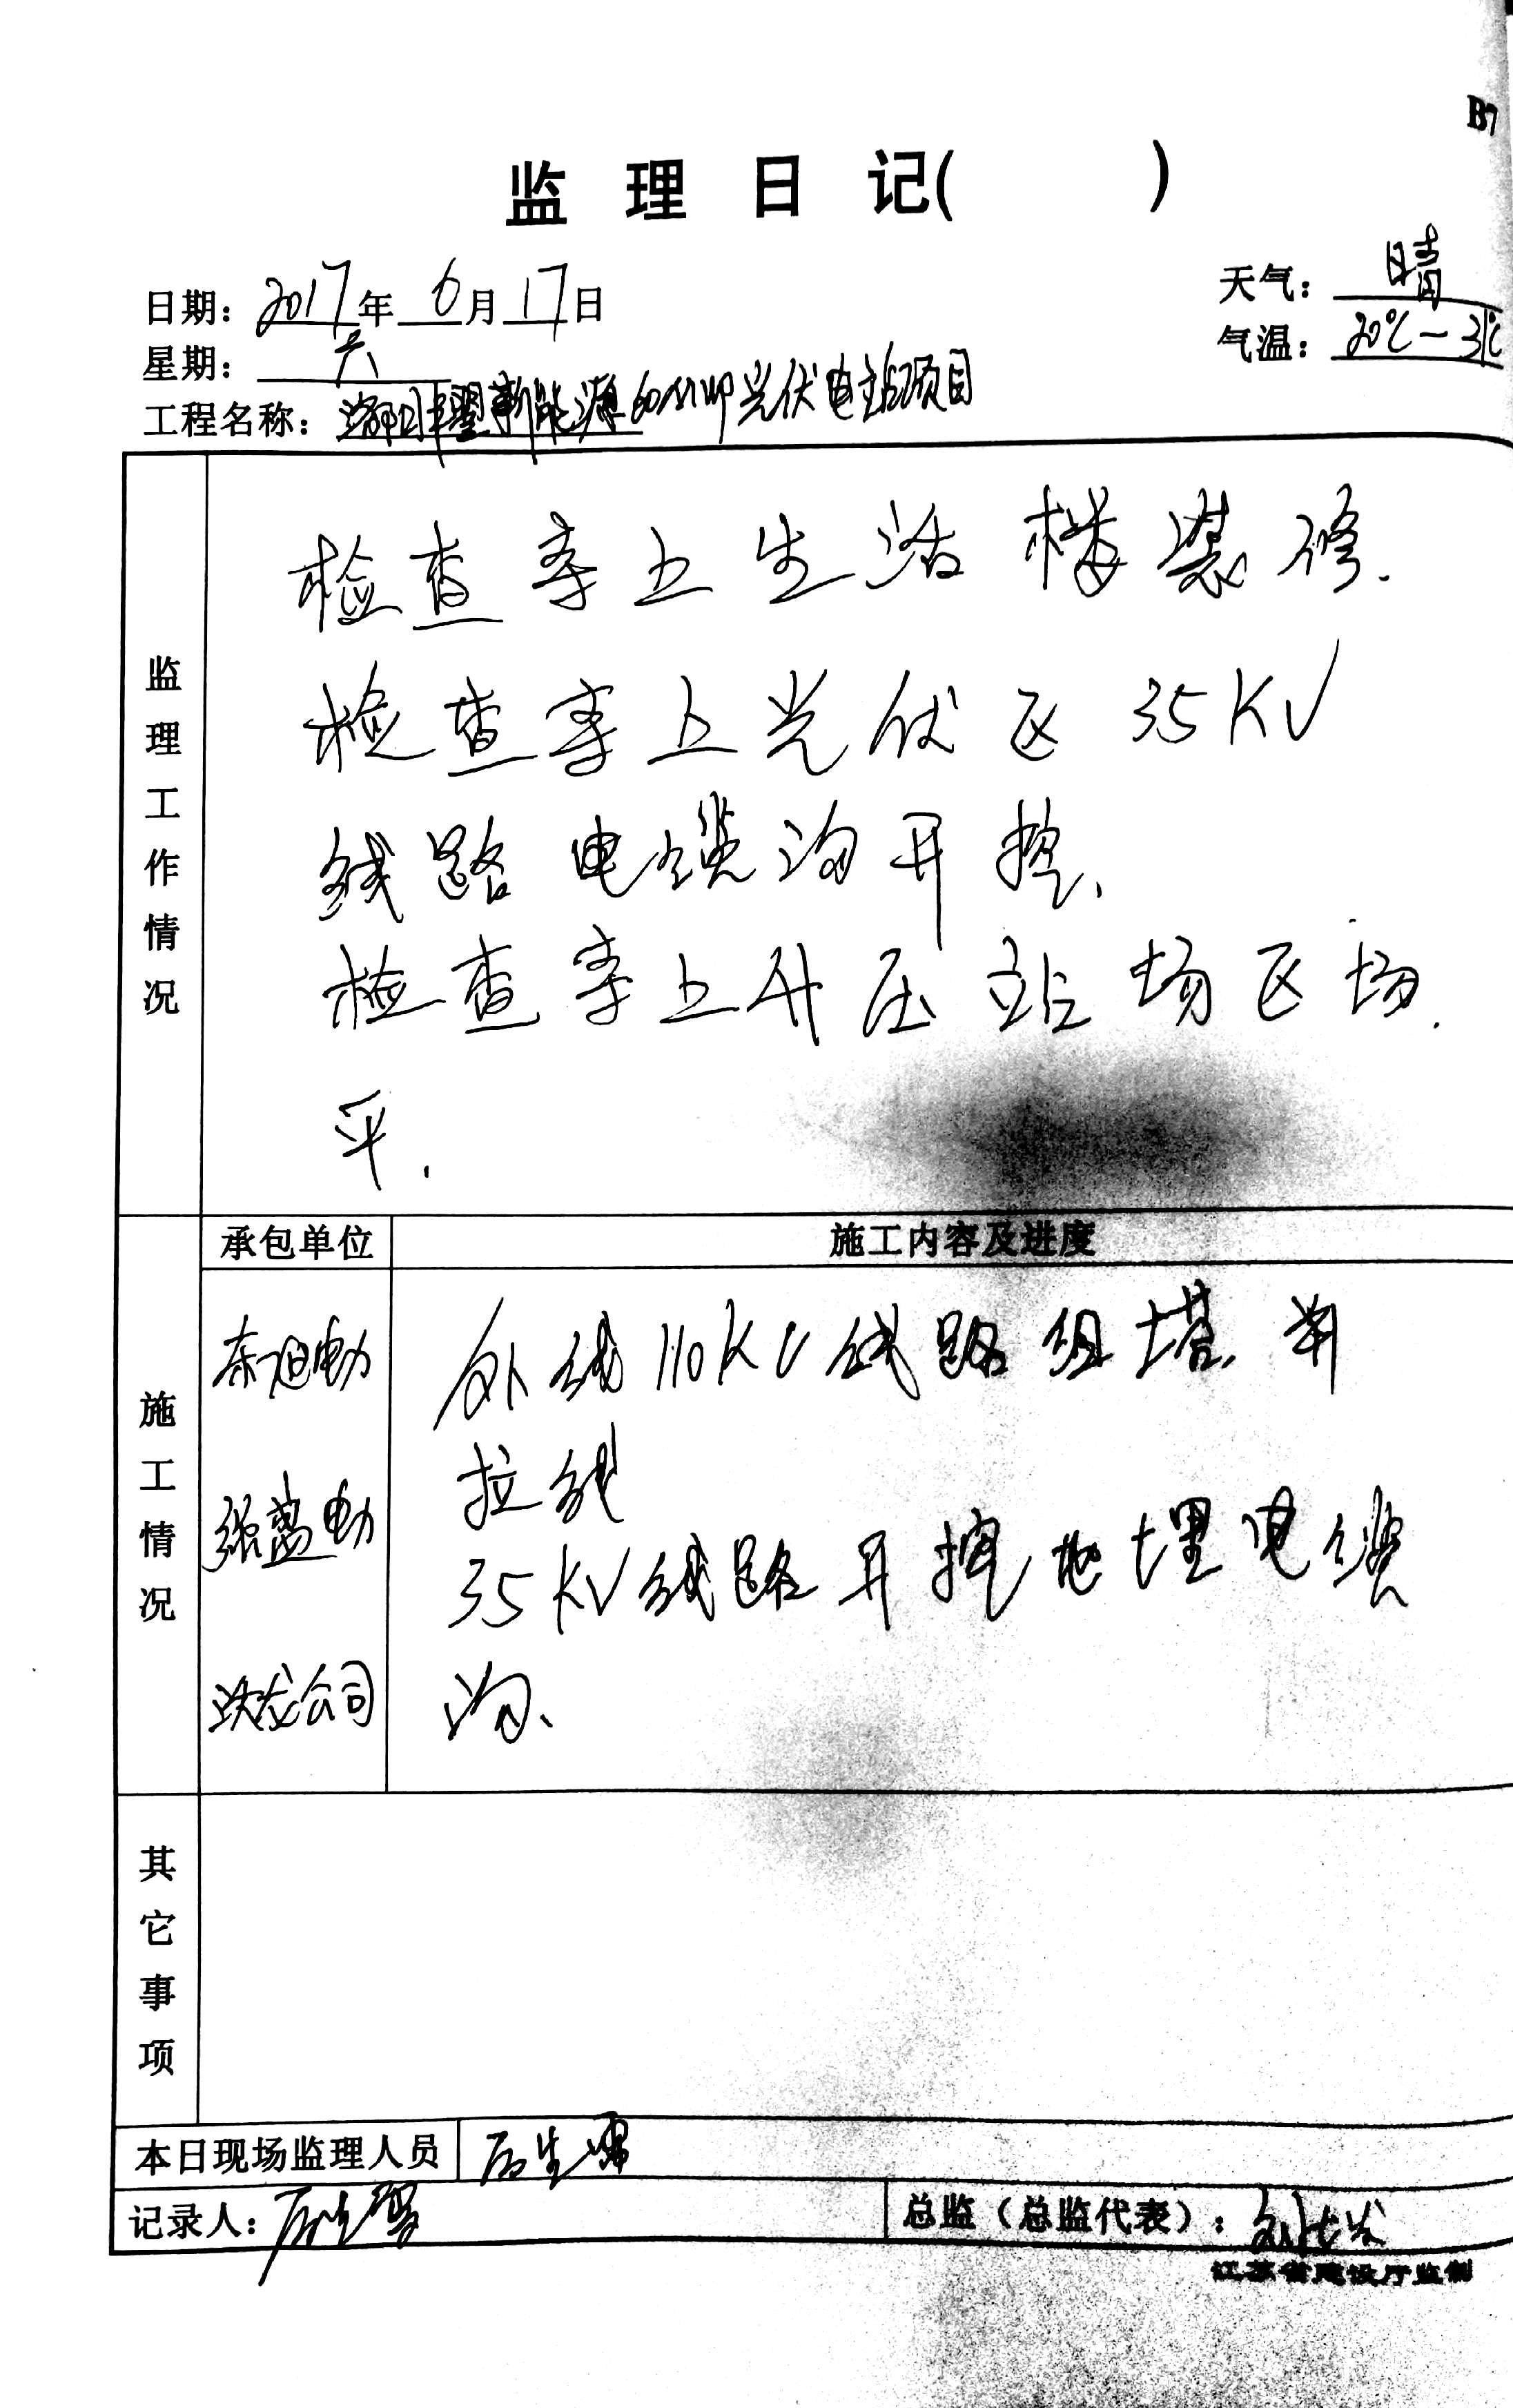 B7
监理日记( )
日期：2017年6月17日
天气：晴
星期：六
气温：20℃—31℃
工程名称：新能源60MWP光伏电站项目
监理工作情况
检查 生活楼装修.
检查 光伏区35KV
线路电缆沟开挖、
检查 升压站场区场.
平.
施工情况
承包单位
施工内容及进度
电力
外线110KV线路组塔、
拉线
电力
35KV线路开挖地埋电缆
公司
沟、
其它事项
本日现场监理人员
记录人：
总监（总监代表）：
江苏省建设厅监制